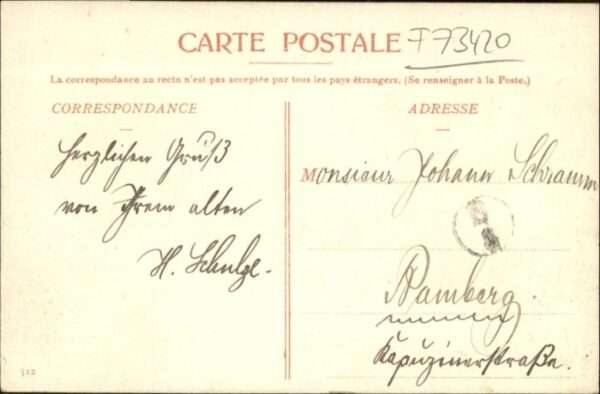 CARTE POSTALE
F73420
La correspondance au recto n'est pas acceptée par tous les pays étrangers. (Se renseigner à la Poste.)
CORRESPONDANCE
Herzlichen Gruß
von Ihrem alten
H. Schulze.
ADRESSE
Monsieur Johann Schramm
Bamberg.
Kapuzinerstraße.